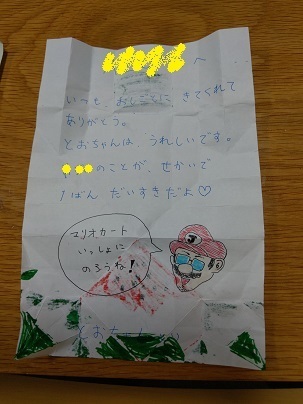 へ
いつも、おしごとに きてくれて
ありがとう。
とおちゃんは、うれしいです。
のことが、せかいで
1ばん だいすきだよ♡
マリオカート
いっしょに
のろうね!
とおちゃん